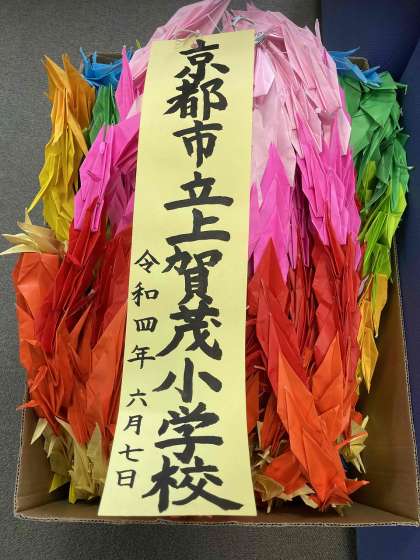 京都市立上賀茂小学校
令和四年 六月七日